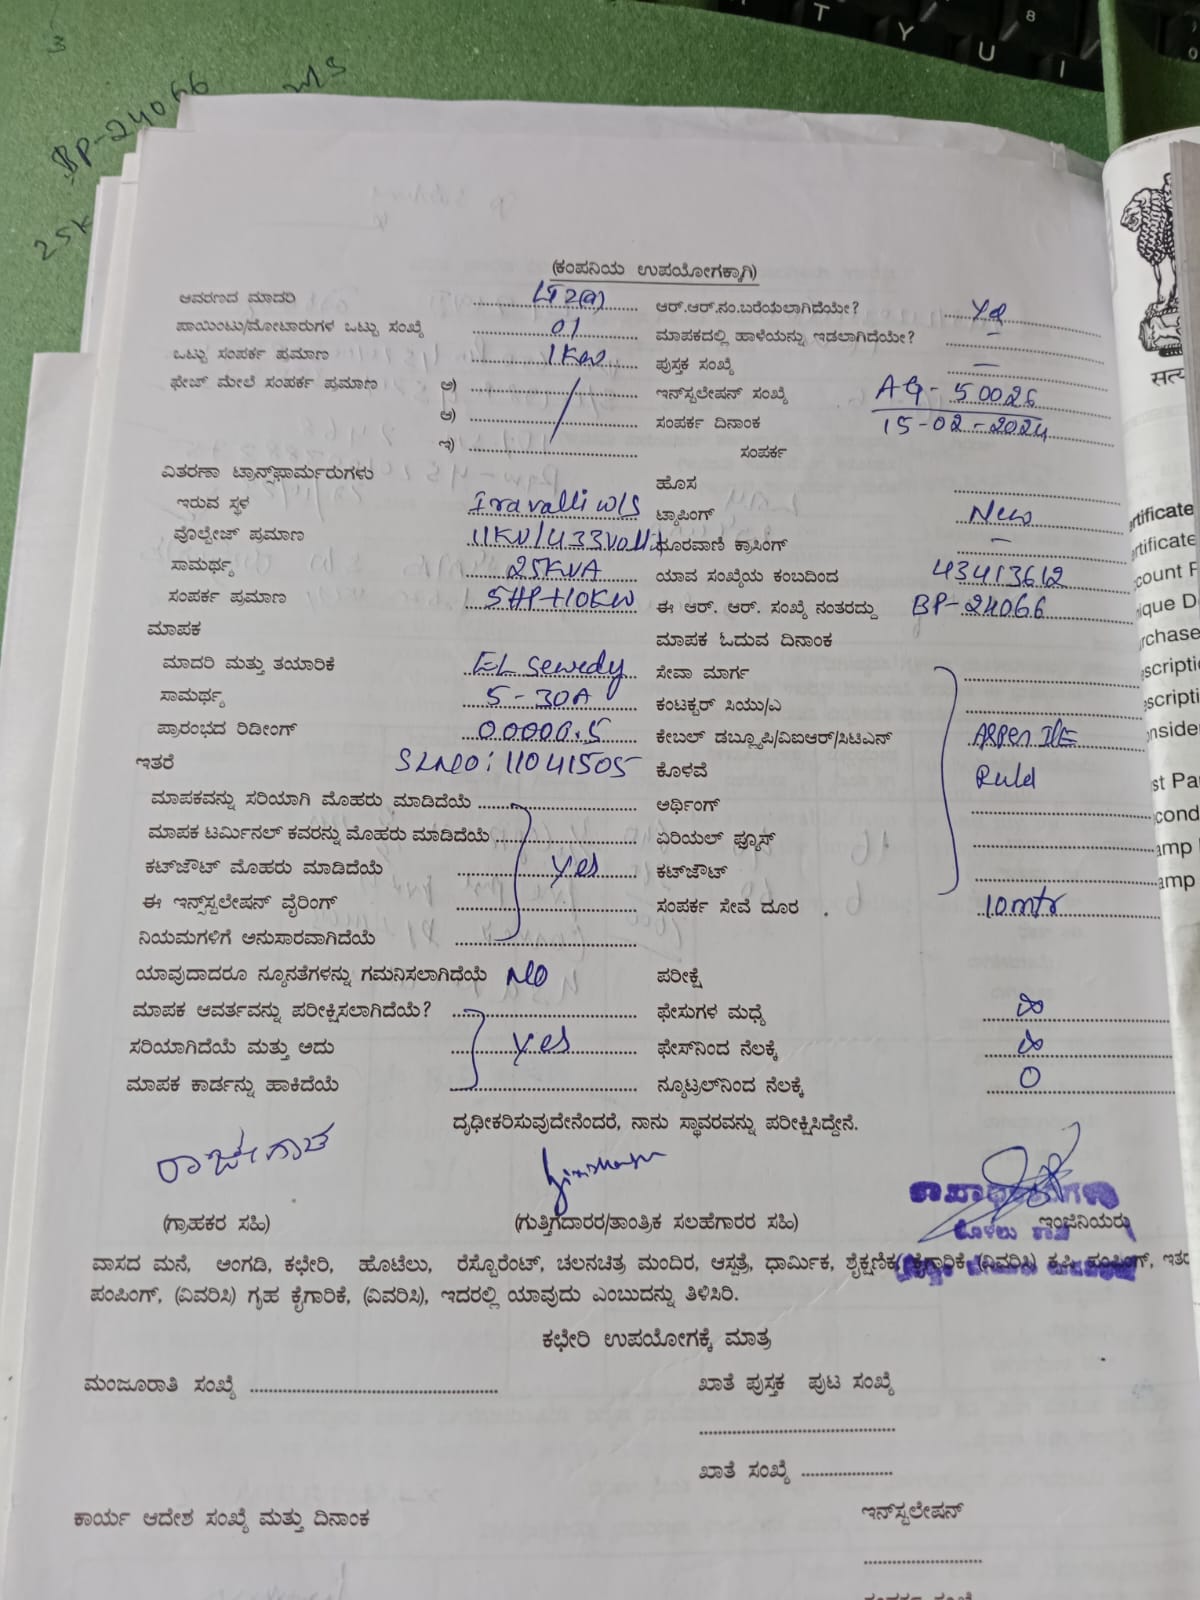 3
BP-24066
WS
25K
T Y U I
8
(ಕಂಪನಿಯ ಉಪಯೋಗಕ್ಕಾಗಿ)
ಆವರಣದ ಮಾದರಿ LT2(a) ಆರ್.ಆರ್.ನಂ.ಬರೆಯಲಾಗಿದೆಯೇ? Yes
ಪಾಯಿಂಟು/ಮೋಟಾರುಗಳ ಒಟ್ಟು ಸಂಖ್ಯೆ 01 ಮಾಪಕದಲ್ಲಿ ಹಾಳೆಯನ್ನು ಇಡಲಾಗಿದೆಯೇ? –
ಒಟ್ಟು ಸಂಪರ್ಕ ಪ್ರಮಾಣ 1Kw ಪುಸ್ತಕ ಸಂಖ್ಯೆ –
ಫೇಜ್ ಮೇಲೆ ಸಂಪರ್ಕ ಪ್ರಮಾಣ ಅ) ಇನ್‌ಸ್ಟಲೇಷನ್ ಸಂಖ್ಯೆ AG-50026
ಆ) ಸಂಪರ್ಕ ದಿನಾಂಕ 15-02-2024
ಇ) ಸಂಪರ್ಕ
ವಿತರಣಾ ಟ್ರಾನ್ಸ್‌ಫಾರ್ಮರುಗಳು ಹೊಸ
ಇರುವ ಸ್ಥಳ Iravalli W/S ಟ್ಯಾಪಿಂಗ್ New
ವೊಲ್ಟೇಜ್ ಪ್ರಮಾಣ 11KV/433Volt ದೂರವಾಣಿ ಕ್ರಾಸಿಂಗ್ –
ಸಾಮರ್ಥ್ಯ 25KVA ಯಾವ ಸಂಖ್ಯೆಯ ಕಂಬದಿಂದ 43413612
ಸಂಪರ್ಕ ಪ್ರಮಾಣ 5HP+10KW ಈ ಆರ್. ಆರ್. ಸಂಖ್ಯೆ ನಂತರದ್ದು BP-24066
ಮಾಪಕ ಮಾಪಕ ಓದುವ ದಿನಾಂಕ
ಮಾದರಿ ಮತ್ತು ತಯಾರಿಕೆ EL Sewedy ಸೇವಾ ಮಾರ್ಗ
ಸಾಮರ್ಥ್ಯ 5-30A ಕಂಟಕ್ಟರ್ ಸಿಯು/ಎ
ಪ್ರಾರಂಭದ ರಿಡೀಂಗ್ 00000.5 ಕೇಬಲ್ ಡಬ್ಲ್ಯೂಪಿ/ವಿಐಆರ್/ಸಿಟಿಎನ್ As per IE
ಇತರೆ SLNO: 11041505 ಕೊಳವೆ Ruld
ಮಾಪಕವನ್ನು ಸರಿಯಾಗಿ ಮೊಹರು ಮಾಡಿದೆಯೆ ಅರ್ಥಿಂಗ್
ಮಾಪಕ ಟರ್ಮಿನಲ್ ಕವರನ್ನು ಮೊಹರು ಮಾಡಿದೆಯೆ ಏರಿಯಲ್ ಫ್ಯೂಸ್
ಕಟ್‌ಔಟ್ ಮೊಹರು ಮಾಡಿದೆಯೆ Yes ಕಟ್‌ಔಟ್
ಈ ಇನ್ಸ್‌ಸ್ಟಲೇಷನ್ ವೈರಿಂಗ್ ಸಂಪರ್ಕ ಸೇವೆ ದೂರ . 10mtr
ನಿಯಮಗಳಿಗೆ ಅನುಸಾರವಾಗಿದೆಯೆ
ಯಾವುದಾದರೂ ನ್ಯೂನತೆಗಳನ್ನು ಗಮನಿಸಲಾಗಿದೆಯೆ NO ಪರೀಕ್ಷೆ
ಮಾಪಕ ಆವರ್ತವನ್ನು ಪರೀಕ್ಷಿಸಲಾಗಿದೆಯೆ? ಫೇಸುಗಳ ಮಧ್ಯೆ ∞
ಸರಿಯಾಗಿದೆಯೆ ಮತ್ತು ಅದು Yes ಫೇಸ್‌ನಿಂದ ನೆಲಕ್ಕೆ ∞
ಮಾಪಕ ಕಾರ್ಡನ್ನು ಹಾಕಿದೆಯೆ ನ್ಯೂಟ್ರಲ್‌ನಿಂದ ನೆಲಕ್ಕೆ 0
ದೃಢೀಕರಿಸುವುದೇನೆಂದರೆ, ನಾನು ಸ್ಥಾವರವನ್ನು ಪರೀಕ್ಷಿಸಿದ್ದೇನೆ.
(ಗ್ರಾಹಕರ ಸಹಿ) (ಗುತ್ತಿಗೆದಾರರ/ತಾಂತ್ರಿಕ ಸಲಹೆಗಾರರ ಸಹಿ) ಇಂಜಿನಿಯರು
ವಾಸದ ಮನೆ, ಅಂಗಡಿ, ಕಛೇರಿ, ಹೊಟೆಲು, ರೆಸ್ಟೊರೆಂಟ್, ಚಲನಚಿತ್ರ ಮಂದಿರ, ಆಸ್ಪತ್ರೆ, ಧಾರ್ಮಿಕ, ಶೈಕ್ಷಣಿಕ, ಕೈಗಾರಿಕೆ (ವಿವರಿಸಿ) ಕೃಷಿ ಪಂಪಿಂಗ್, ಇತರ
ಪಂಪಿಂಗ್, (ವಿವರಿಸಿ) ಗೃಹ ಕೈಗಾರಿಕೆ, (ವಿವರಿಸಿ), ಇದರಲ್ಲಿ ಯಾವುದು ಎಂಬುದನ್ನು ತಿಳಿಸಿರಿ.
ಕಛೇರಿ ಉಪಯೋಗಕ್ಕೆ ಮಾತ್ರ
ಮಂಜೂರಾತಿ ಸಂಖ್ಯೆ ಖಾತೆ ಪುಸ್ತಕ ಪುಟ ಸಂಖ್ಯೆ
ಖಾತೆ ಸಂಖ್ಯೆ
ಕಾರ್ಯ ಆದೇಶ ಸಂಖ್ಯೆ ಮತ್ತು ದಿನಾಂಕ ಇನ್‌ಸ್ಟಲೇಷನ್
सत्य
ertificate
ertificate
ccount R
nique D
rchase
escripti
escripti
onside
st Pa
cond
amp
amp